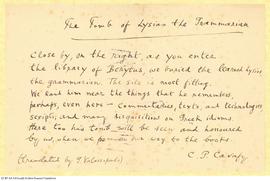 The Tomb of Lysias the Grammarian
Close by, on the right, as you enter
the library of Berytus, we buried the learned Lysias,
the grammarian. The site is most fitting.
We put him near the things that he remembers,
perhaps, even here — commentaries, texts, and technologies
scripts, and many disquisitions on Greek idioms.
Here too his tomb will be seen and honoured
by us, when we pass on our way to the books.
C. P. Cavafy
(translated by G. Valassopoulo)